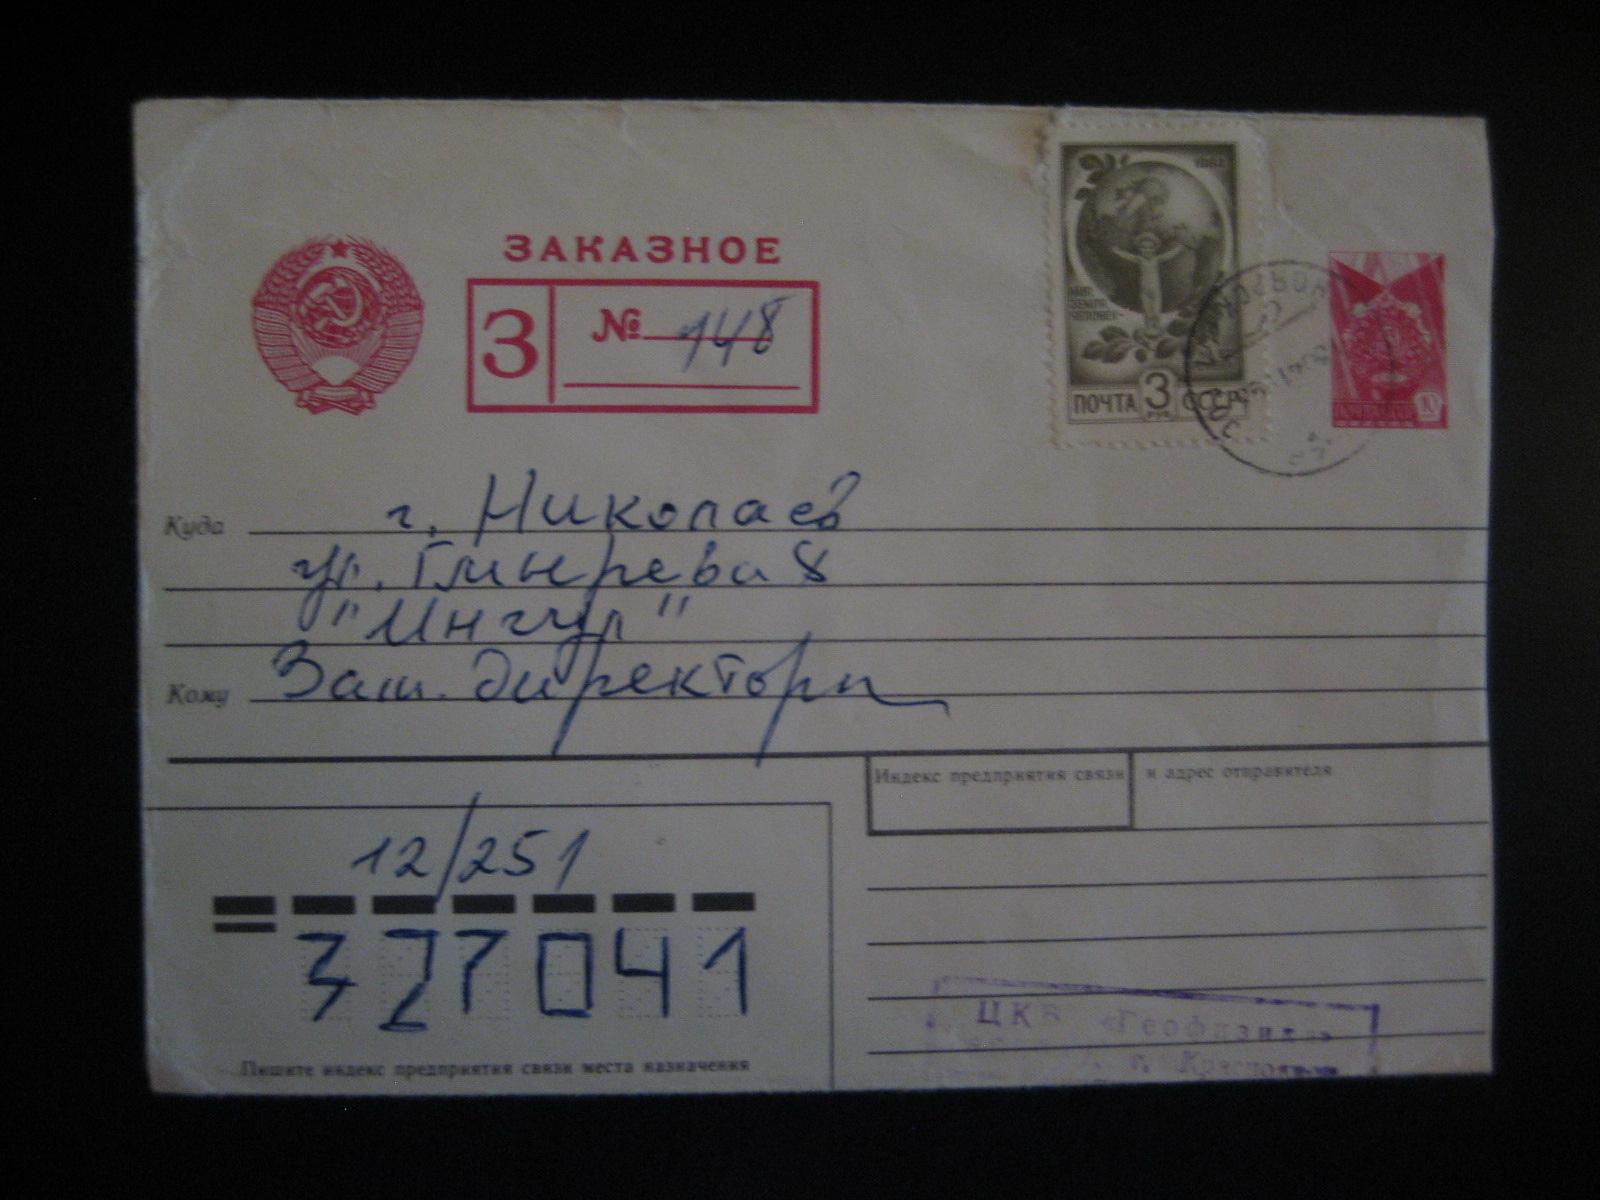 ЗАКАЗНОЕ
З № 148
МИР
ЗЕМЛЯ
ЧЕЛОВЕК
ПОЧТА 3 СССР
РУБ
10
Куда г. Николаев
ул. 8
"Ингул"
Кому Зам. директора
Индекс предприятия связи и адрес отправителя
12/251
327041
Пишите индекс предприятия связи места назначения
ЦКБ «Геофизика»
г. Красноярск